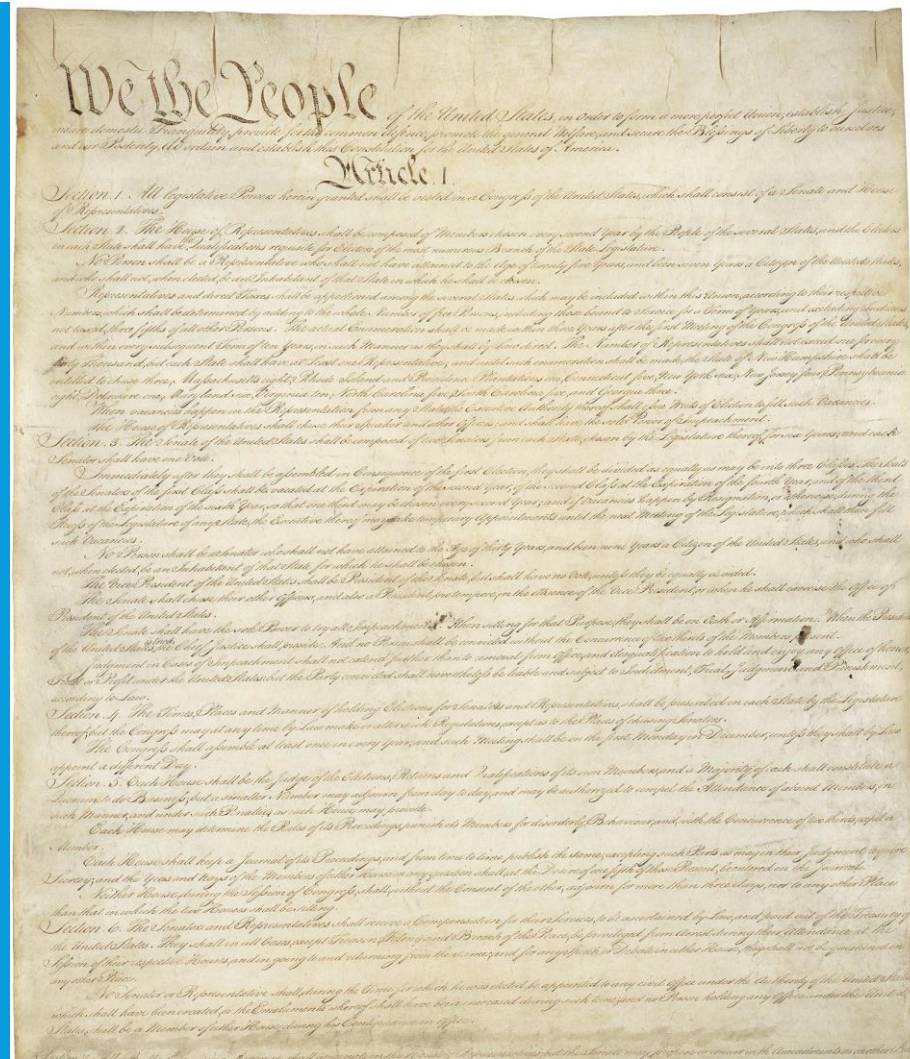 We the People of the United States, in Order to form a more perfect Union, establish Justice,
insure domestic Tranquility, provide for the common defence, promote the general Welfare, and secure the Blessings of Liberty to ourselves
and our Posterity, do ordain and establish this Constitution for the United States of America.
Article. I.
Section. 1. All legislative Powers herein granted shall be vested in a Congress of the United States, which shall consist of a Senate and House
of Representatives.
Section. 2. The House of Representatives shall be composed of Members chosen every second Year by the People of the several States, and the Electors
in each State shall have the Qualifications requisite for Electors of the most numerous Branch of the State Legislature.
No Person shall be a Representative who shall not have attained to the Age of twenty five Years, and been seven Years a Citizen of the United States,
and who shall not, when elected, be an Inhabitant of that State in which he shall be chosen.
Representatives and direct Taxes shall be apportioned among the several States which may be included within this Union, according to their respective
Numbers, which shall be determined by adding to the whole Number of free Persons, including those bound to Service for a Term of Years, and excluding Indians
not taxed, three fifths of all other Persons. The actual Enumeration shall be made within three Years after the first Meeting of the Congress of the United States,
and within every subsequent Term of ten Years, in such Manner as they shall by Law direct. The Number of Representatives shall not exceed one for every
thirty Thousand, but each State shall have at Least one Representative; and until such enumeration shall be made, the State of New Hampshire shall be
entitled to chuse three, Massachusetts eight, Rhode Island and Providence Plantations one, Connecticut five, New York six, New Jersey four, Pennsylvania
eight, Delaware one, Maryland six, Virginia ten, North Carolina five, South Carolina five, and Georgia three.
When vacancies happen in the Representation from any State, the Executive Authority thereof shall issue Writs of Election to fill such Vacancies.
The House of Representatives shall chuse their Speaker and other Officers; and shall have the sole Power of Impeachment.
Section. 3. The Senate of the United States shall be composed of two Senators from each State, chosen by the Legislature thereof, for six Years; and each
Senator shall have one Vote.
Immediately after they shall be assembled in Consequence of the first Election, they shall be divided as equally as may be into three Classes. The Seats
of the Senators of the first Class shall be vacated at the Expiration of the second Year, of the second Class at the Expiration of the fourth Year, and of the third
Class at the Expiration of the sixth Year, so that one third may be chosen every second Year; and if Vacancies happen by Resignation, or otherwise, during the
Recess of the Legislature of any State, the Executive thereof may make temporary Appointments until the next Meeting of the Legislature, which shall then fill
such Vacancies.
No Person shall be a Senator who shall not have attained to the Age of thirty Years, and been nine Years a Citizen of the United States, and who shall
not, when elected, be an Inhabitant of that State for which he shall be chosen.
The Vice President of the United States shall be President of the Senate, but shall have no Vote, unless they be equally divided.
The Senate shall chuse their other Officers, and also a President pro tempore, in the Absence of the Vice President, or when he shall exercise the Office of
President of the United States.
The Senate shall have the sole Power to try all Impeachments. When sitting for that Purpose, they shall be on Oath or Affirmation. When the President
of the United States is tried, the Chief Justice shall preside: And no Person shall be convicted without the Concurrence of two thirds of the Members present.
Judgment in Cases of Impeachment shall not extend further than to removal from Office, and disqualification to hold and enjoy any Office of honor,
Trust or Profit under the United States: but the Party convicted shall nevertheless be liable and subject to Indictment, Trial, Judgment and Punishment,
according to Law.
Section. 4. The Times, Places and Manner of holding Elections for Senators and Representatives, shall be prescribed in each State by the Legislature
thereof; but the Congress may at any time by Law make or alter such Regulations, except as to the Places of chusing Senators.
The Congress shall assemble at least once in every Year, and such Meeting shall be on the first Monday in December, unless they shall by Law
appoint a different Day.
Section. 5. Each House shall be the Judge of the Elections, Returns and Qualifications of its own Members, and a Majority of each shall constitute a
Quorum to do Business; but a smaller Number may adjourn from day to day, and may be authorized to compel the Attendance of absent Members, in
such Manner, and under such Penalties as each House may provide.
Each House may determine the Rules of its Proceedings, punish its Members for disorderly Behaviour, and, with the Concurrence of two thirds, expel a
Member.
Each House shall keep a Journal of its Proceedings, and from time to time publish the same, excepting such Parts as may in their Judgment require
Secrecy; and the Yeas and Nays of the Members of either House on any question shall, at the Desire of one fifth of those Present, be entered on the Journal.
Neither House, during the Session of Congress, shall, without the Consent of the other, adjourn for more than three days, nor to any other Place
than that in which the two Houses shall be sitting.
Section. 6. The Senators and Representatives shall receive a Compensation for their Services, to be ascertained by Law, and paid out of the Treasury of
the United States. They shall in all Cases, except Treason, Felony and Breach of the Peace, be privileged from Arrest during their Attendance at the
Session of their respective Houses, and in going to and returning from the same; and for any Speech or Debate in either House, they shall not be questioned in
any other Place.
No Senator or Representative shall, during the Time for which he was elected, be appointed to any civil Office under the Authority of the United States,
which shall have been created, or the Emoluments whereof shall have been encreased during such time; and no Person holding any Office under the United
States, shall be a Member of either House during his Continuance in Office.